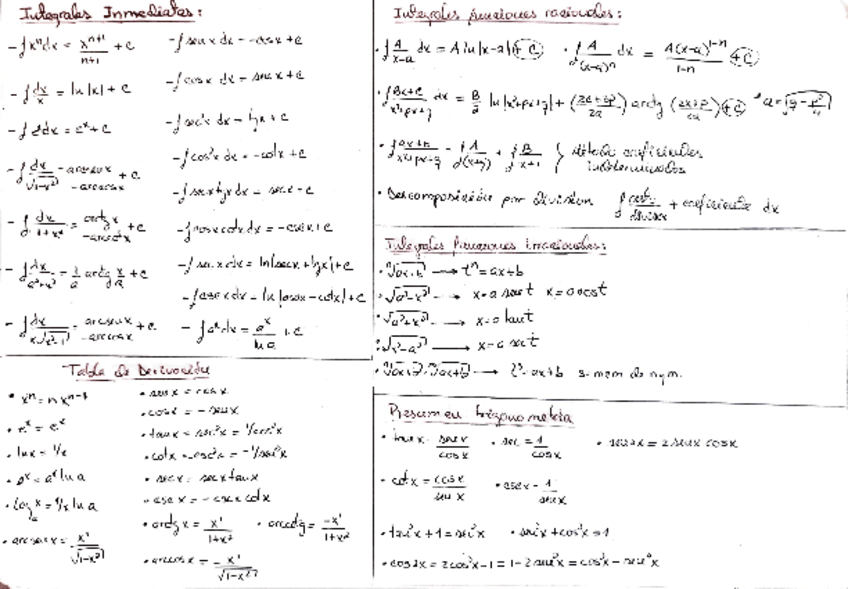 Integrales Inmediatas:
- ∫xⁿdx = xⁿ⁺¹/n+1 + c
- ∫dx/x = ln|x| + c
- ∫eˣdx = eˣ + c
- ∫dx/√1-x² = arcsenx -arccosx + c
- ∫dx/1+x² = arctgx -arcctx + c
- ∫dx/a²+x² = 1/a arctg x/a + c
- ∫dx/x√x²-1 = arcsenx -arccosx + c
- ∫senx dx = -cosx + c
- ∫cosx dx = senx + c
- ∫sec²x dx = tgx + c
- ∫csc²x dx = -cotx + c
- ∫secxtgx dx = secx + c
- ∫cosxcotx dx = -cscx + c
- ∫secxdx = ln|secx + tgx| + c
- ∫cscxdx = ln|cscx - cotx| + c
- ∫aˣdx = aˣ/ln a + c
Tabla de Derivación
• xⁿ = n xⁿ⁻¹
• eˣ = eˣ
• lnx = 1/x
• aˣ = aˣ ln a
• logₐx = 1/x ln a
• arcsenx = x'/√1-x²
• senx = cosx
• cosx = -senx
• tanx = sec²x = 1/cos²x
• cotx = -csc²x = -1/sen²x
• secx = secx tanx
• cscx = -cscx cotx
• arctgx = x'/1+x² • arcctg = -x'/1+x²
• arccosx = -x'/√1-x²
Integrales funciones racionales:
• ∫A/x-a dx = A ln|x-a| + C • ∫A/(x-a)ⁿ dx = A(x-a)¹⁻ⁿ/1-n + C
• ∫Bx+C/x²+px+q dx = B/2 ln|x²+px+q| + (2C+Bp/2a) arctg (2x+p/2a) + C • a = √q - p²/4
• ∫ax+b/x²+px+q = ∫A/(x+q) + ∫B/x+1 } Método coeficientes
indeterminados
• Descomposición por división ∫resto/divisor + coeficiente dx
Integrales funciones irracionales:
• ⁿ√ax+b → tⁿ = ax+b
• √a²-x² → x=a sent x=a cost
• √a²+x² → x=a tant
• √x²-a² → x=a sect
Resumen trigonometría
• tanx = senx/cosx • sec = 1/cosx • sen2x = 2senx cosx
• cotx = cosx/senx • cscx = 1/senx
• tan²x + 1 = sec²x • sen²x + cos²x = 1
• cos2x = 2cos²x - 1 = 1 - 2sen²x = cos²x - sen²x